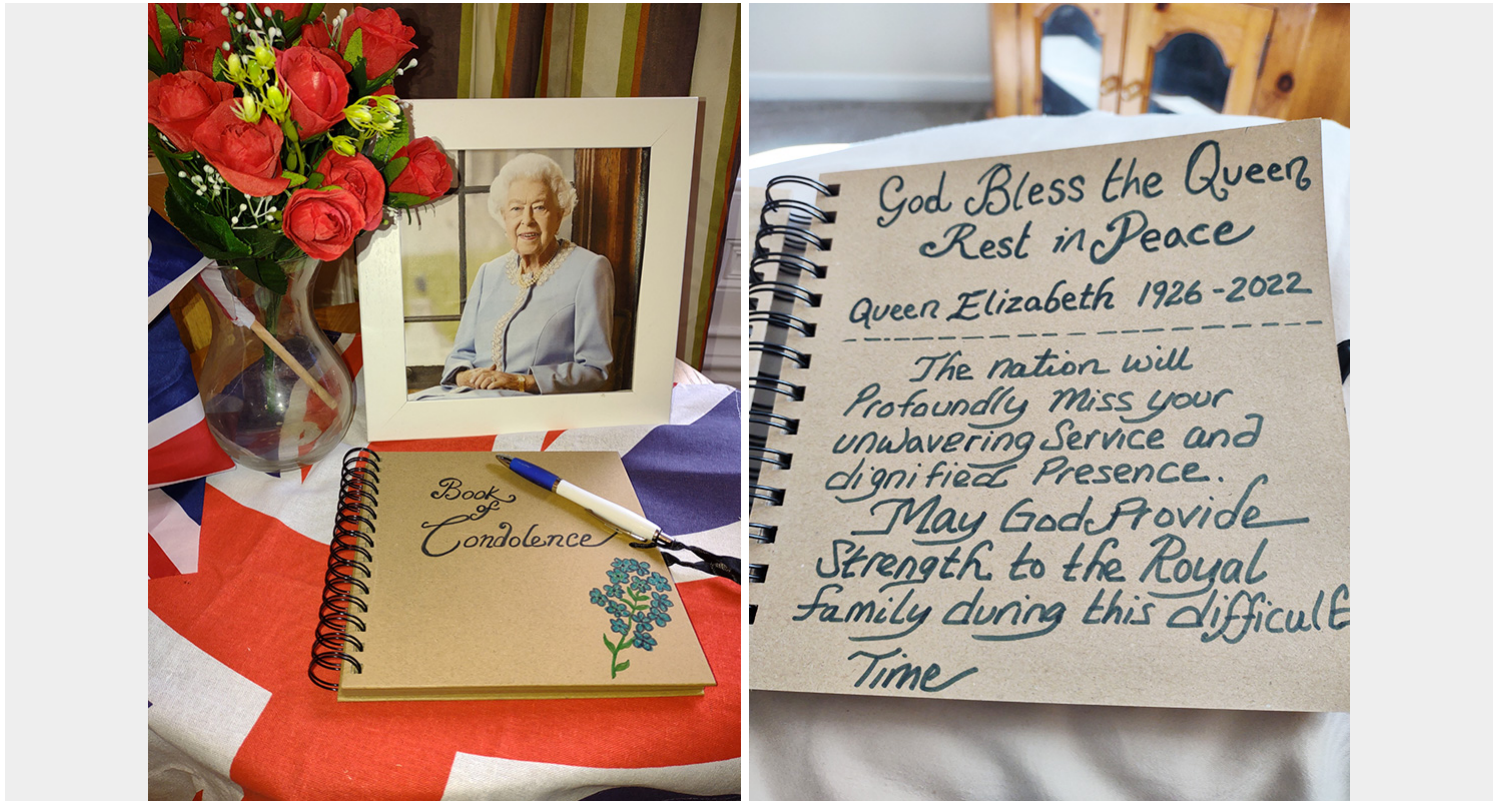 Book
of
Condolence
God Bless the Queen
Rest in Peace
Queen Elizabeth 1926-2022
The nation will
Profoundly Miss your
unwavering Service and
dignified Presence.
May God Provide
Strength to the Royal
family during this difficult
Time